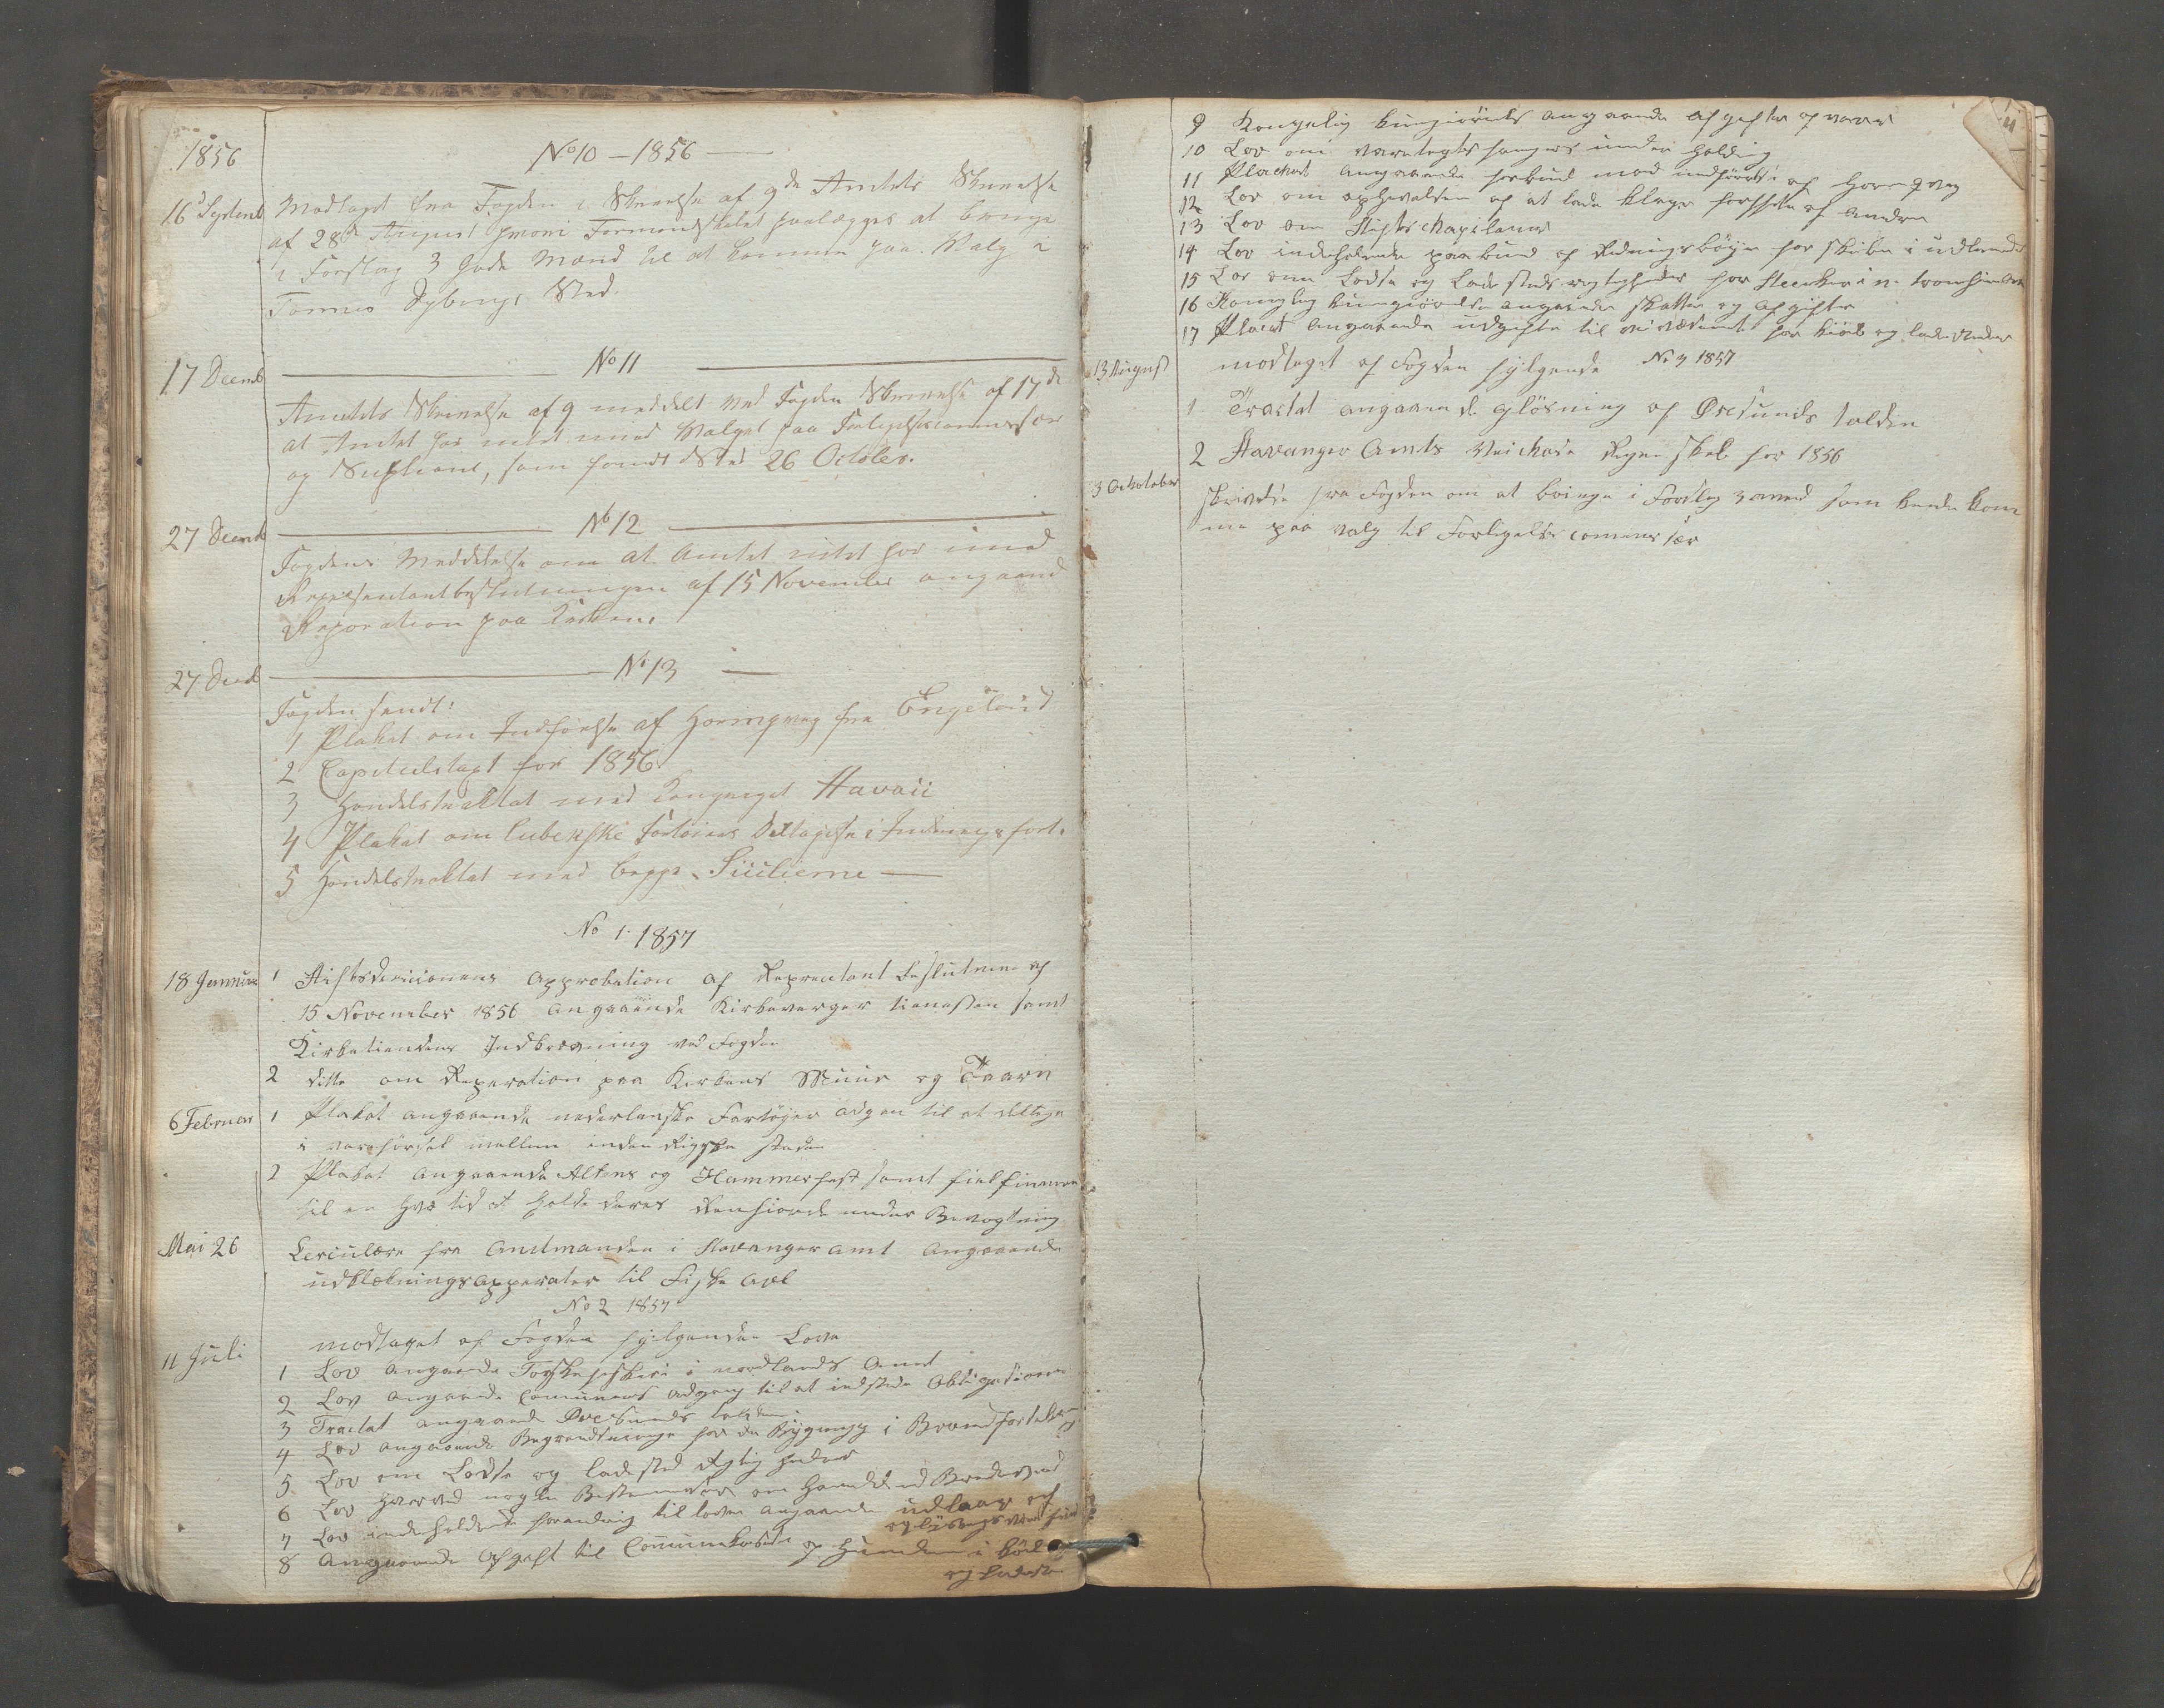 1856
No 10 – 1856
16d Septemb Modtaget fra Fogden i Skrivelse af 9de Amtets Skrivelse
af 28de August hvori Formandskabet paalægges at bringe
i Forslag 3 gode Mænd til at komme paa Valg i
Tønnes Dybings Sted.
17 Decemb No 11
Amtets Skrivelse af 9 meddelt ved Fogdens Skrivelse af 17de
at Amtet har intet imod Valget paa Forligelsescommissær
og Suppleant, som fandt Sted 26 October.
27 Decemb No 12
Fogdens Meddelelse om at Amtet intet har imod
Repræsentantbeslutningen af 15 November angaaend
Reparation paa Kirken.
27 Decb No 13
Fogden sendt:
1 Plakat om Indførelse af Hornqvæg fra Engeland
2 Capitelstaxt for 1856
3 Handelstraktat med Kongeriget Havaii
4 Plakat om lubekske Fartøiers Deltagelse i Indenrigsfart.
5 Handelstraktat med begge Sicilierne
No 1. 1857
18 Januar 1 Stiftsdireicionens approbation af Reprentant Beslutnin af
15 November 1856 angaaende Kirkeverger tienesten samt
Kirketiendens Indkrævning ved Fogden
2 ditto om Reperation paa Kirkens Muur og Taarn
6 Februar 1 Plakat angaaende nederlanske Fartøyer adgan til at deltage
i vareførsel mellem inden Rigske steder
2 Plakat angaaende Altens og Hammerfest samt fielfinner
til en hver tid at holde deres Renhiorde under Bevogtning
Mai 26 Cerculære fra Amtmanden i Stavanger amt angaaende
udklækningsapperater til Fiske avl
No 2 1857
11 Juli modtaget af Fogden fylgende Love
1 Lov angaaende Torskefiskeri i nordlands Amt
2 Lov angaaende Comunens adgang til at udstede Obligationer
3 Tractat angaaende Øresunds tolden
4 Lov angaaende Begrændsninge for de Bygning i Brand forsikring
5 Lov om Ladse og ladested Rettigheder
6 Lov hvorved nogle Bestemelser om Handel med Brendevind
7 Lov indeholdende forandring til loven angaaende udlaan af
oplysnings væsenet
8 angaaende afgift til Comunekasse af Hunde i Køb
og Ladested
9 Kongelig kungiørrels angaaende afgifter af varer
10 Lov om varetegts fangers under holding
11 Plackat angaaende forbud mod indførsel af Hornqvæg
12 Lov om ophevelsen af at lade klager forfatte af andre
13 Lov om Stifts chapilaner
14 Lov indeholdende paabud af Redningsbøyer for skibe i udlandet
15 Lov om Ladse og Lade steds rettigheder for Steenkier i n. tronhiem Amt
16 Kongelig kungiørrelse angaaende skatter og afgifter
17 Placat angaaende udgifter til veivæsenet for kiøb og lade steder
13 August modtaget af Fogden fylgende No 3 1857
1 Tractat angaaende afløsning af Øresunds tolden
2 Stavanger Amts Veichase Regnskab for 1856
3 Ocktober skrivelse fra Fogden om at bringe i Forslag 3 mænd som kunde kom
me paa valg til Forligelses comme sær